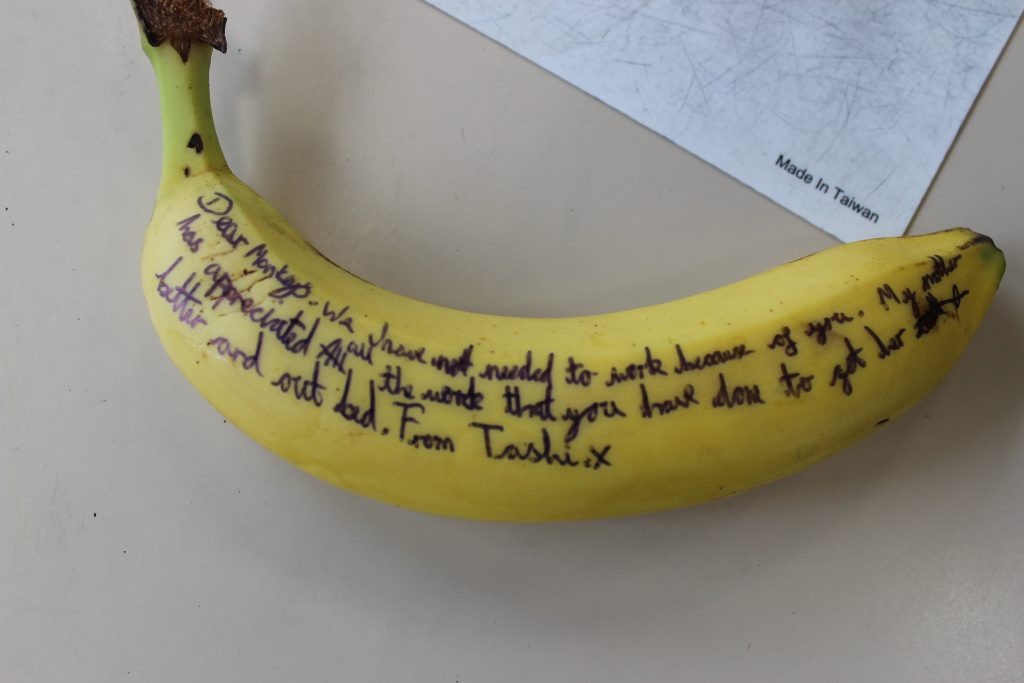 Made In Taiwan
Dear Monkeys. We have not needed to work because of you. My mother
has appreciated all the work that you have done to get her
bettir and out bed. From Tashi.x